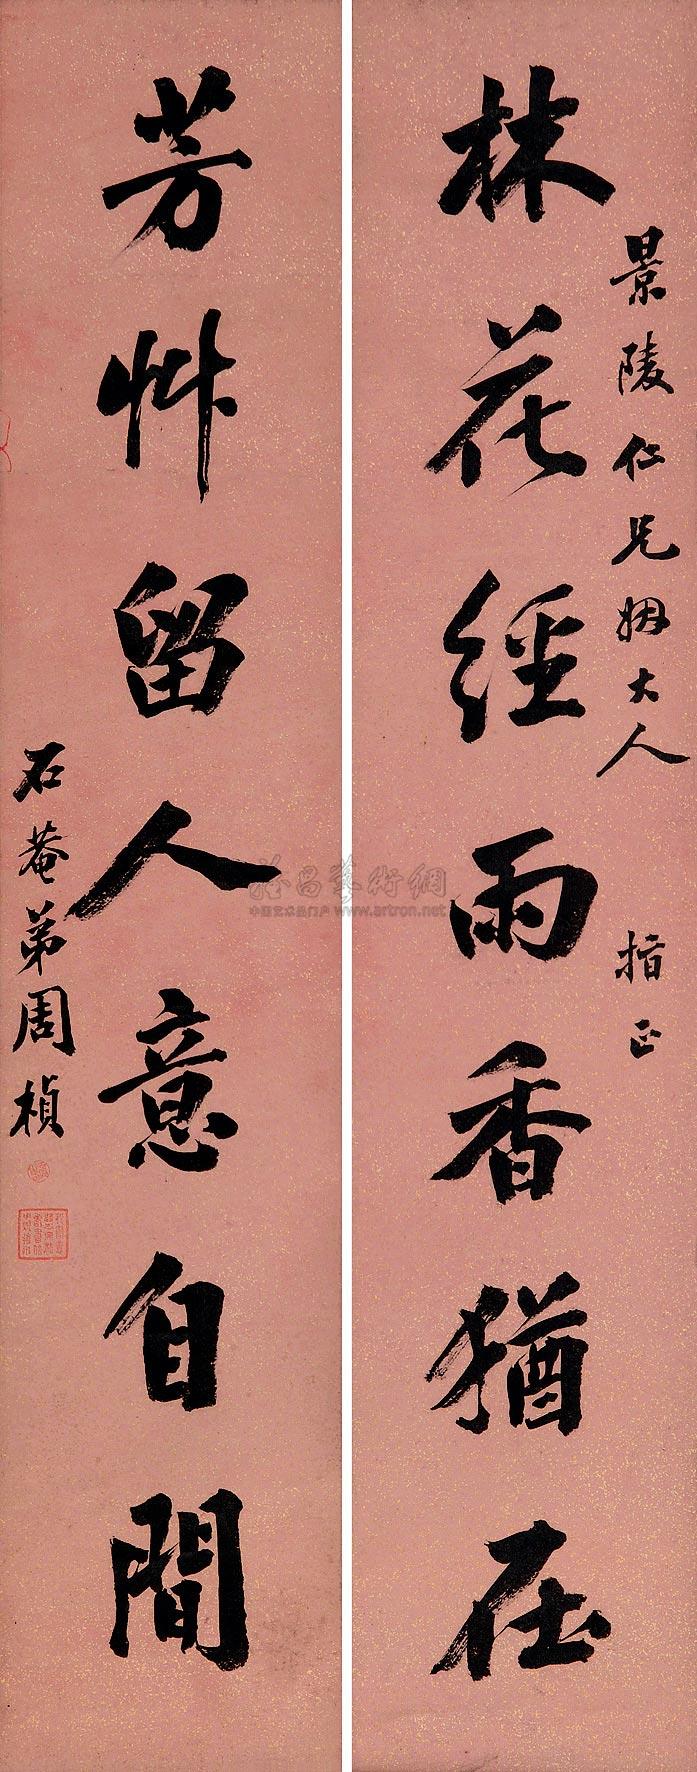 林花經雨香猶在
景陵仁兄姻大人 指正
芳艸留人意自閒
石菴弟周楨
雅昌藝術網
中国艺术品门户 www.artron.net